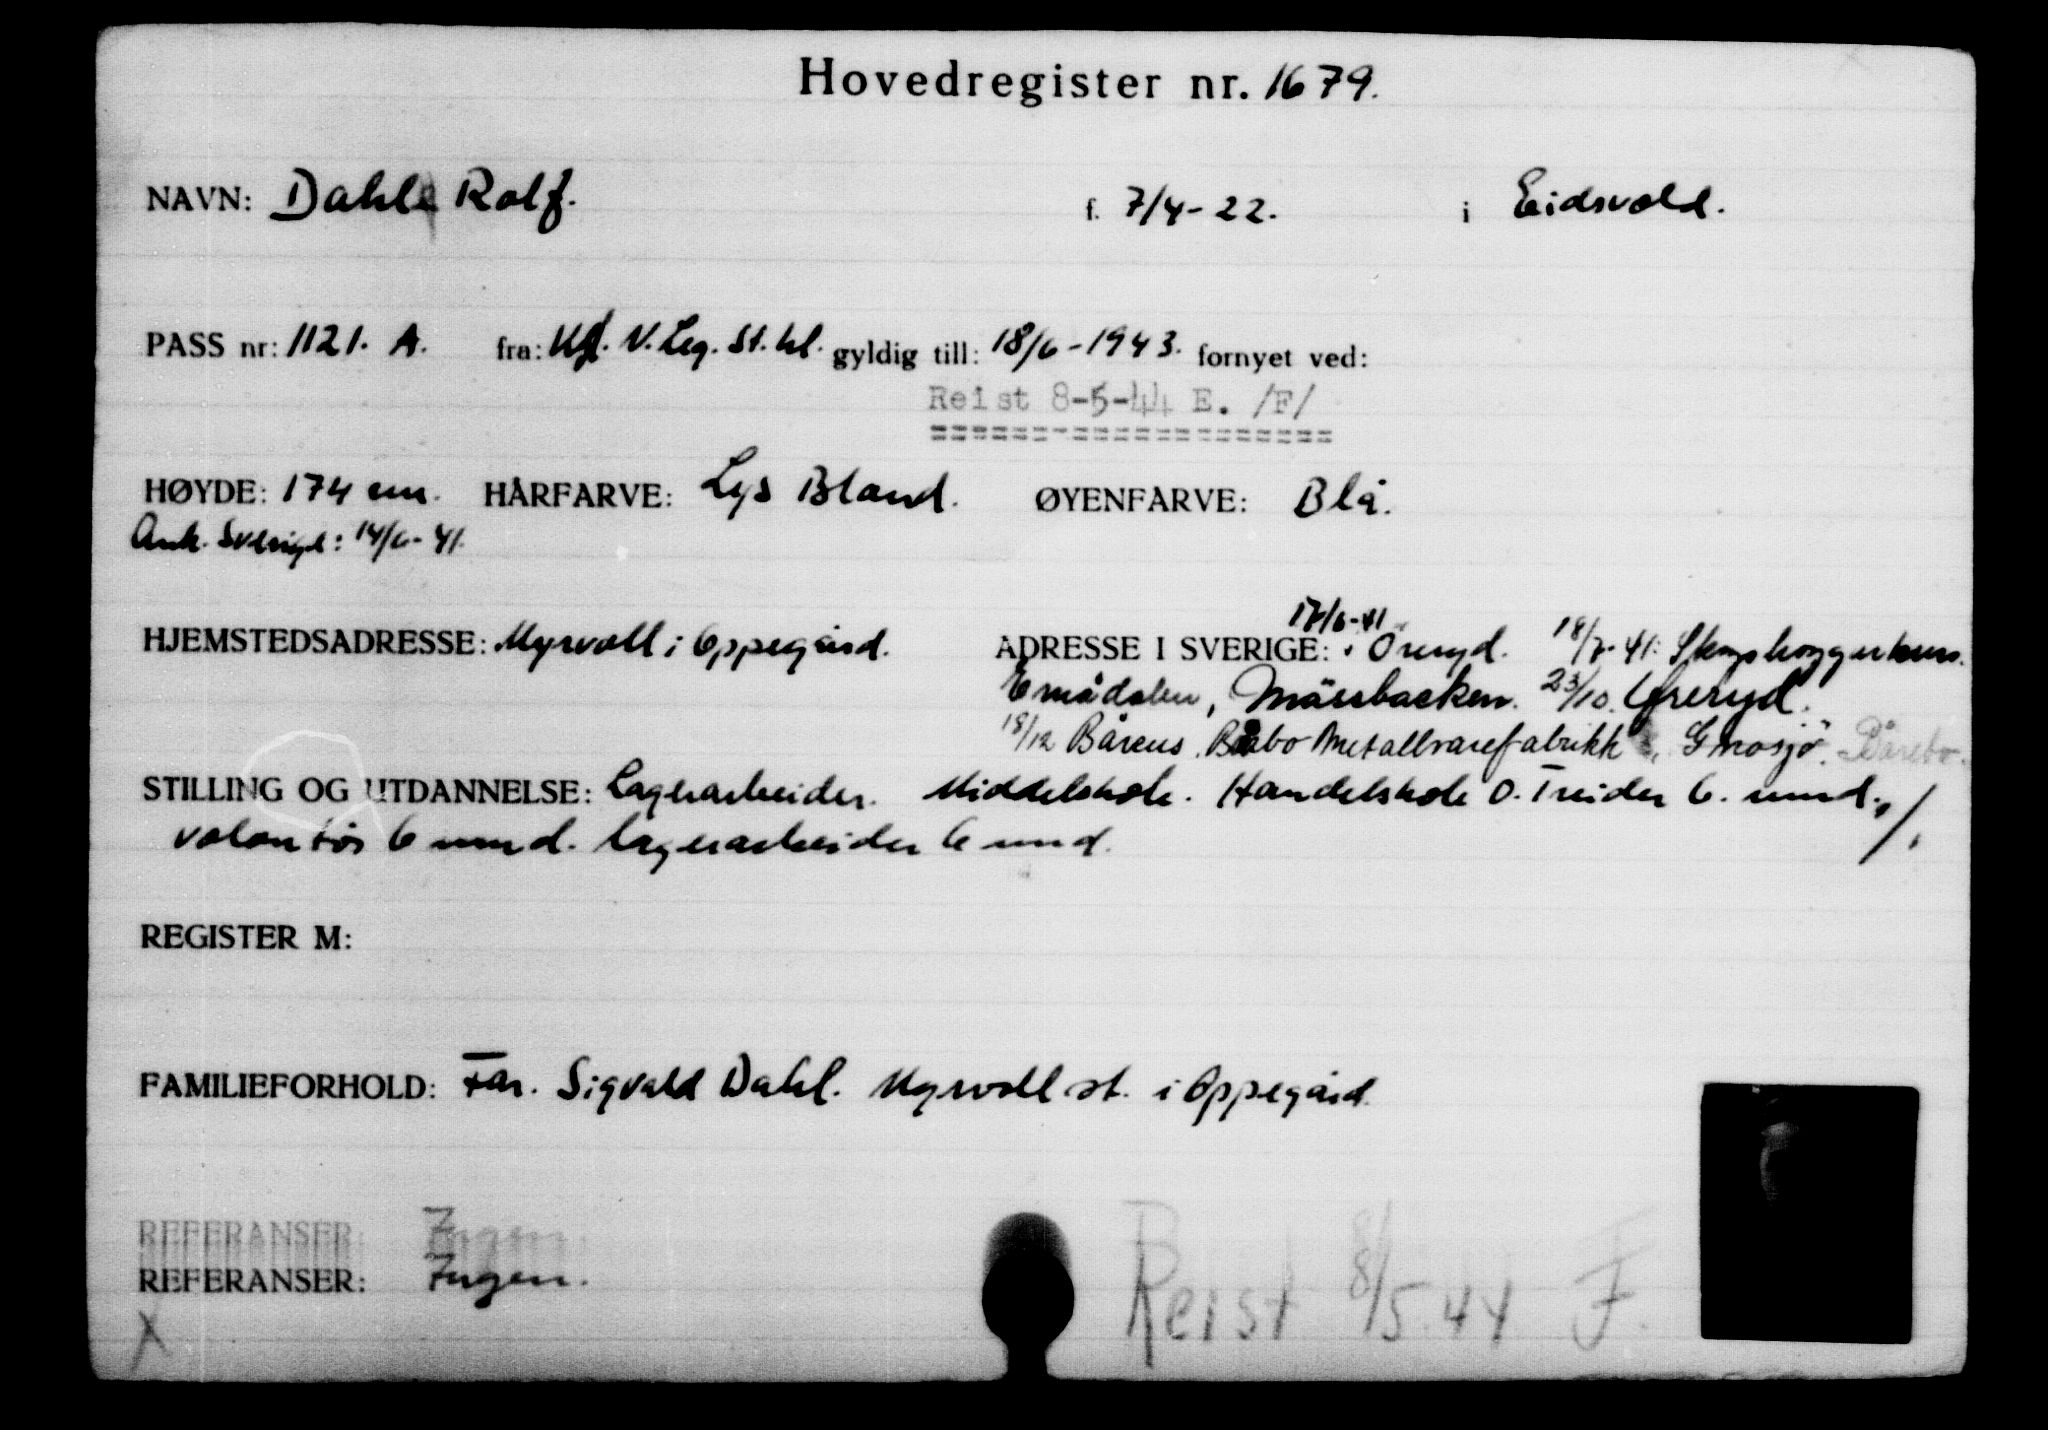 Hovedregister nr. 1679.
NAVN: Dahl Rolf. f. 7/4-22. i Eidsvold.
PASS nr: 1121. A. fra: Kgl. N. Leg. St. hl. gyldig till: 18/6-1943. fornyet ved:
Reist 8-5-44 E. /F/
HØYDE: 174 cm. HÅRFARVE: Lys Blond. ØYENFARVE: Blå.
Ank. Sverige: 14/6-41.
17/6-41
HJEMSTEDSADRESSE: Myrvoll i Oppegård. ADRESSE I SVERIGE: Öreryd. 18/7-41: Skogshoggerkurs.
Emådalen, Mässbacken. 23/10. Öreryd.
18/12 Bårebo Metallvarefabrikk, Gnosjö. Bårebo.
STILLING OG UTDANNELSE: Lagerarbeider. Middelskole. Handelskole O. Treider 6. mnd.,
volontør 6 mnd. lagerarbeider 6 mnd. /.
REGISTER M:
FAMILIEFORHOLD: Far. Sigvald Dahl. Myrvoll st. i Oppegård.
REFERANSER: Ingen.
REFERANSER: Ingen.
X Reist 8/5.44 F.